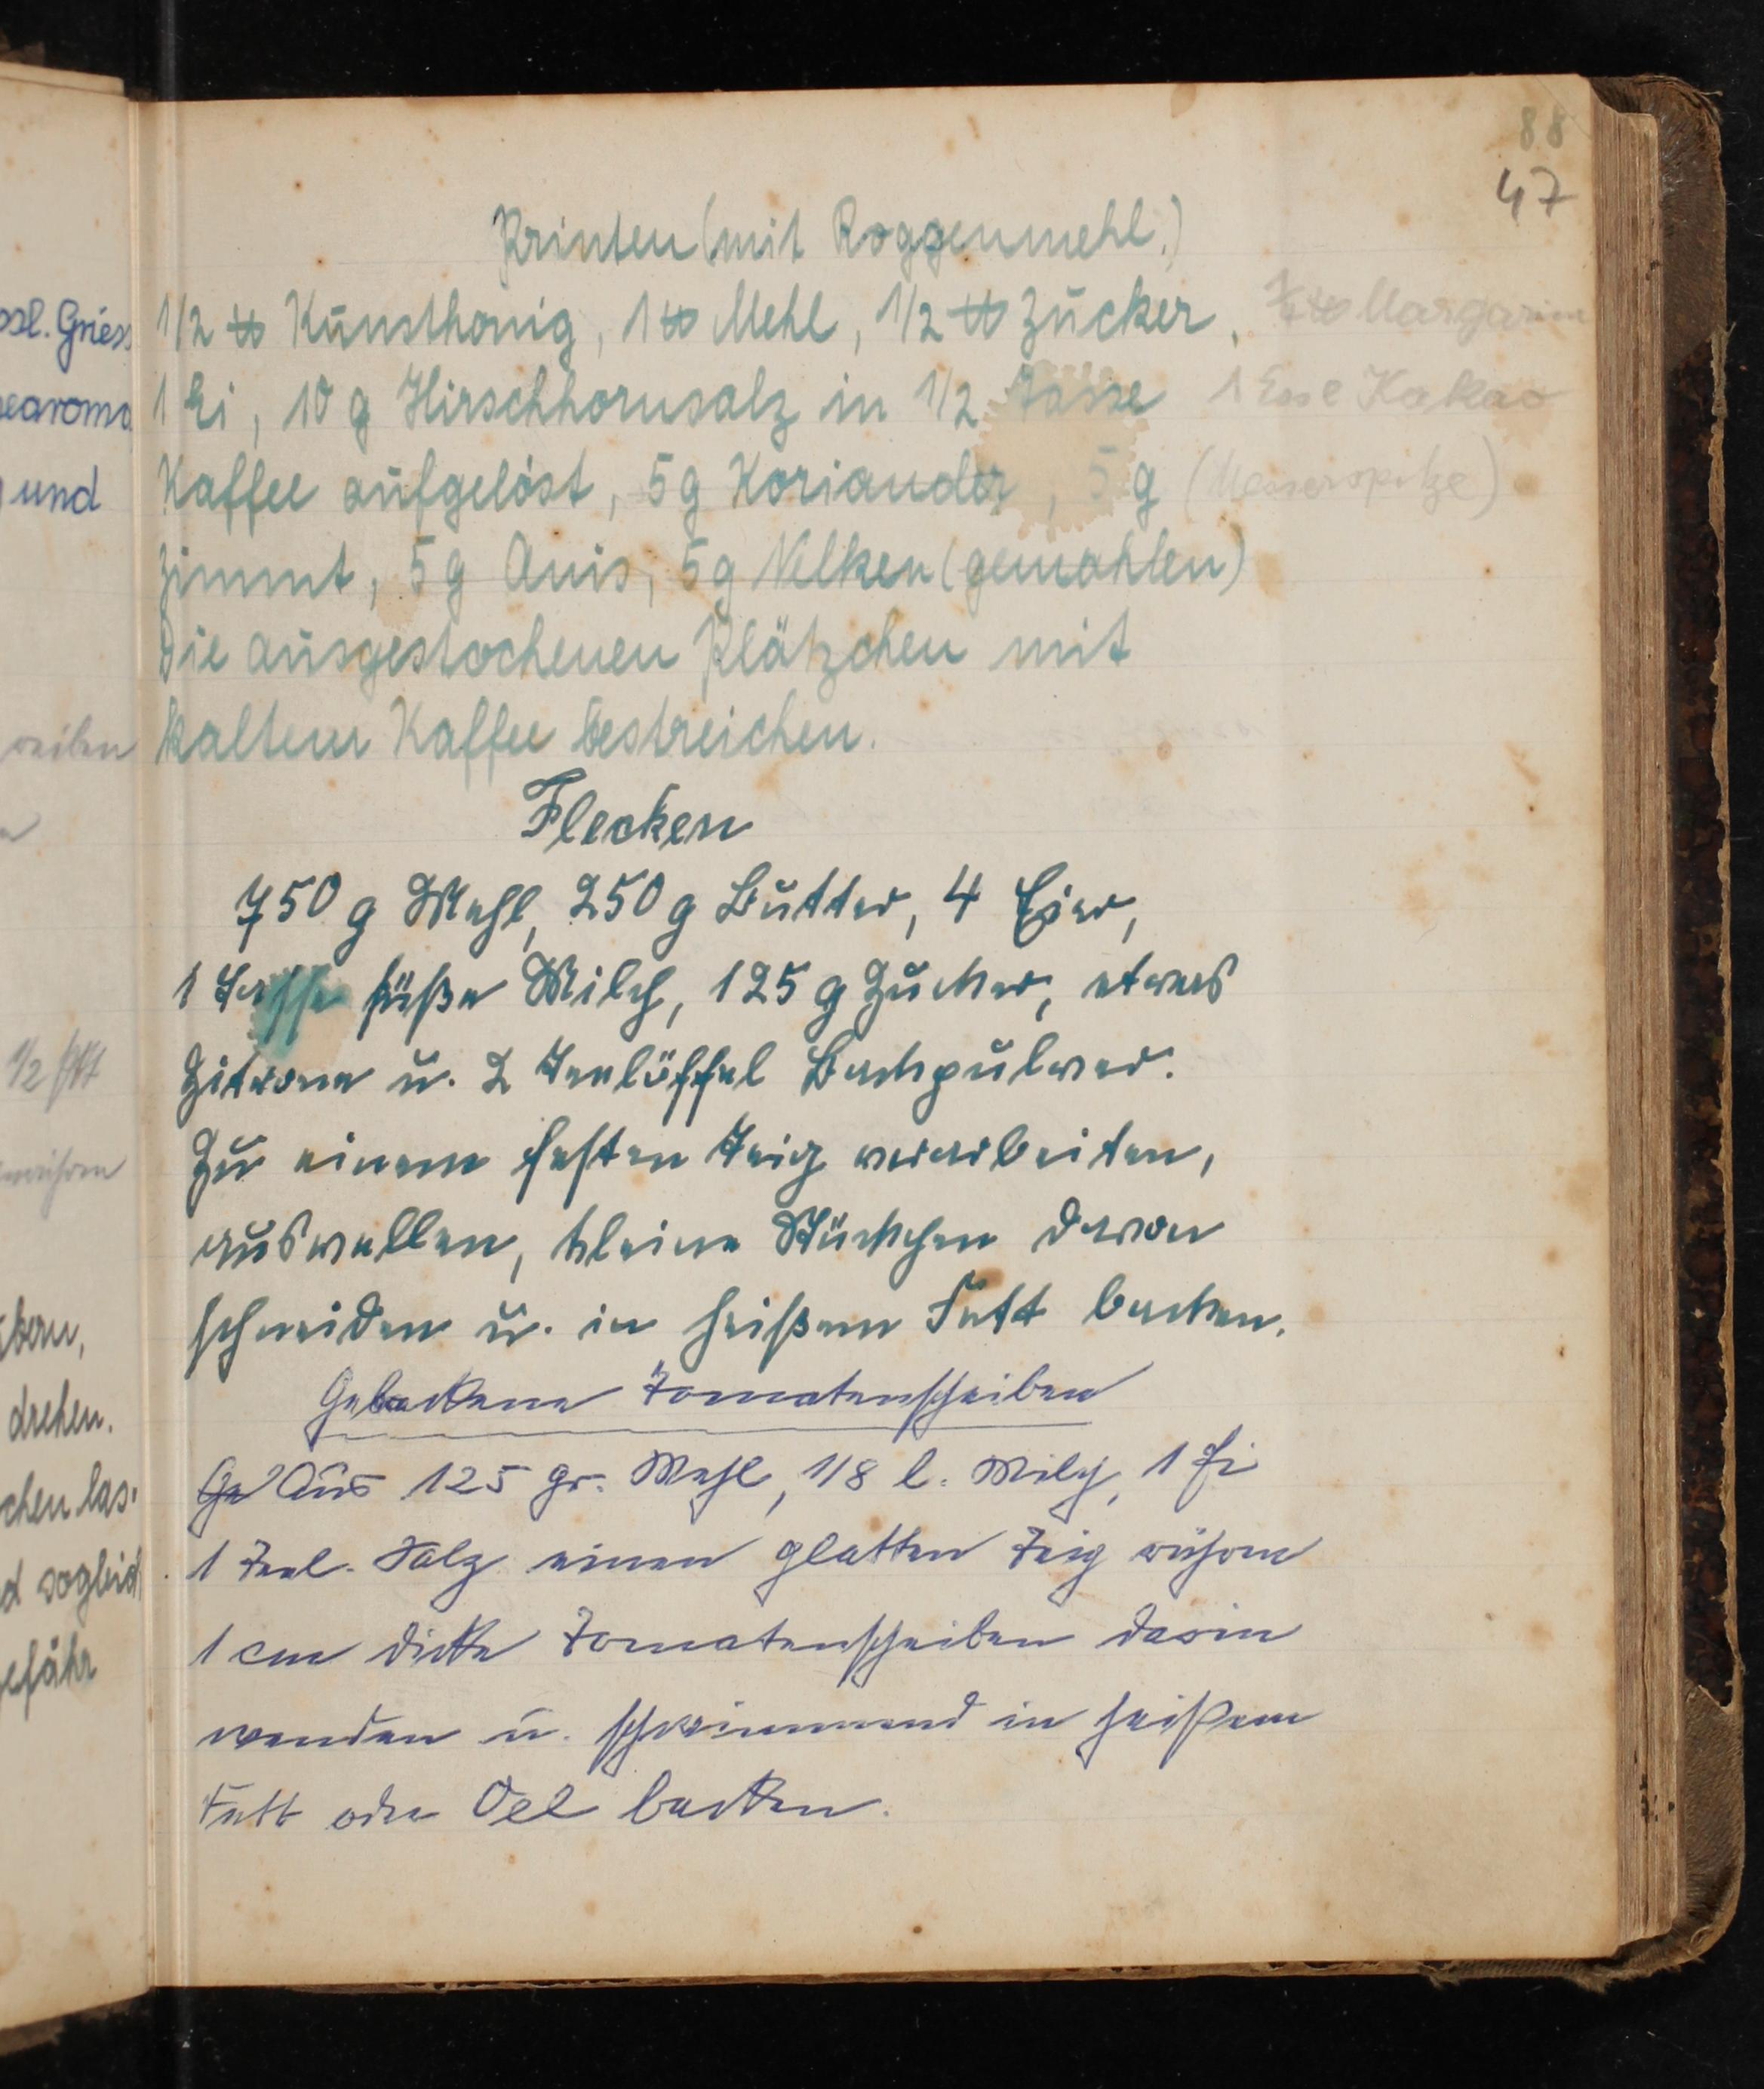 88
47
Printen (mit Roggenmehl.)
1/2 ℔ Kunsthonig, 1 ℔ Mehl, 1/2 ℔ Zucker, ℔ Margarine
1 Ei, 10 g Hirschhornsalz in 1/2 Tasse 1 Essl Kakao
Kaffee aufgelöst, 5g Koriander, 5 g (Messerspitze)
Zimmt, 5g Anis, 5g Nelken (gemahlen)
Die ausgestochenen Plätzchen mit
kaltem Kaffee bestreichen.
Flecken
750 g Mehl, 250 g Butter, 4 Eier,
1 Tasse süße Milch, 125 g Zucker, etwas
Zitrone u. 2 Teelöffel Backpulver.
Zu einem festen Teig verarbeiten,
auswellen, kleine Stückchen davon
schneiden u. in heißem Fett backen.
Gebackene Tomatenscheiben
Ge Aus 125 gr. Mehl, 1/8 l. Milch, 1 Ei
1 Teel. Salz einen glatten Teig rühren
1 cm dicke Tomatenscheiben darin
wenden u. schwimmend in heißem
Fett oder Oel backen.
ssl. Griess
earoma
und
reiben
1/2
rühren
bern,
drehen.
chen las-
d sogleich
gefähr